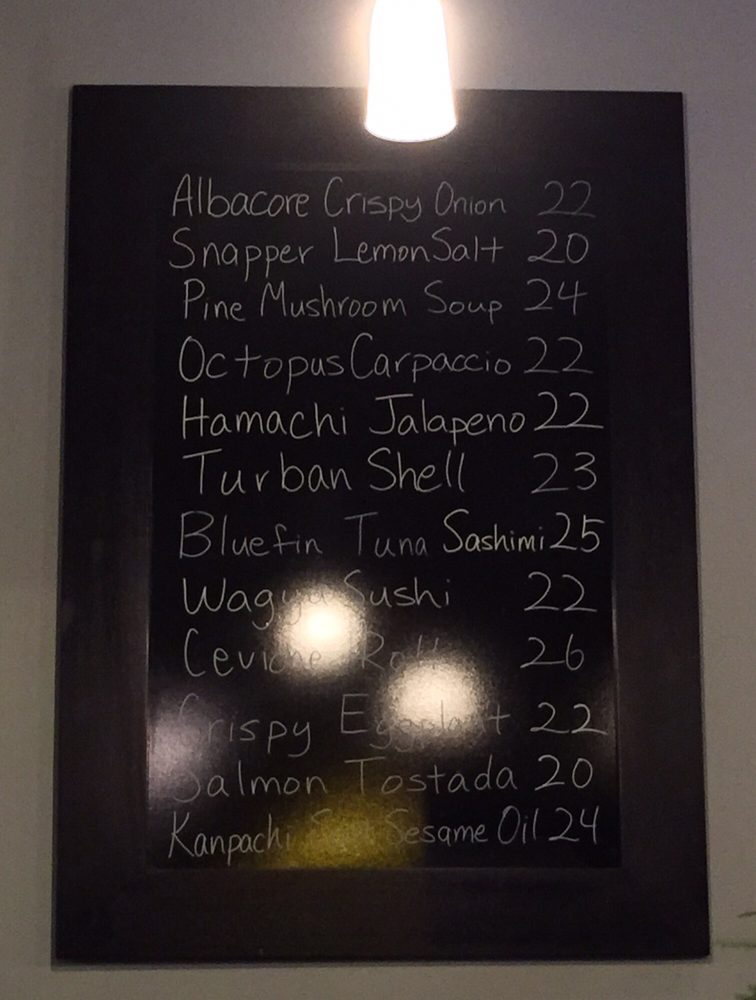 Albacore Crispy Onion 22
Snapper Lemon Salt 20
Pine Mushroom Soup 24
Octopus Carpaccio 22
Hamachi Jalapeno 22
Turban Shell 23
Bluefin Tuna Sashimi 25
Wagyu Sushi 22
Ceviche Roll 26
Crispy Eggplant 22
Salmon Tostada 20
Kanpachi Sesame Oil 24